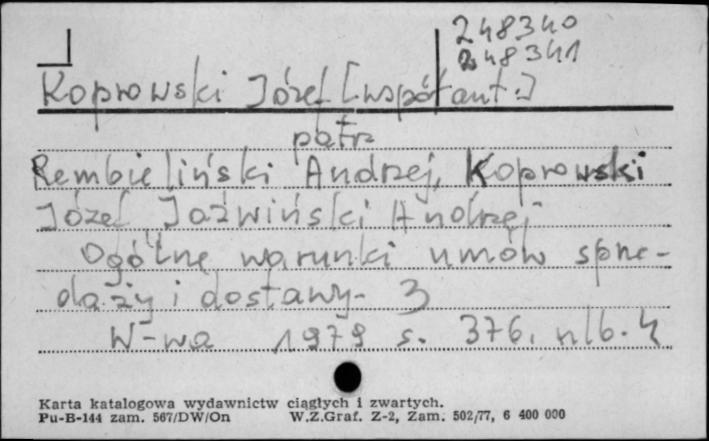 248340
248341
Koprowski Józef [współaut.]
patrz
Rembieliński Andrzej, Koprowski
Józef Jaźwiński Andrzej
Ogólne warunki umów sprze-
daży i dostawy. 3
W-wa 1979 s. 376, nlb. 4
Karta katalogowa wydawnictw ciągłych i zwartych.
Pu-B-144 zam. 567/DW/On W.Z.Graf. Z-2, Zam. 502/77, 6 400 000